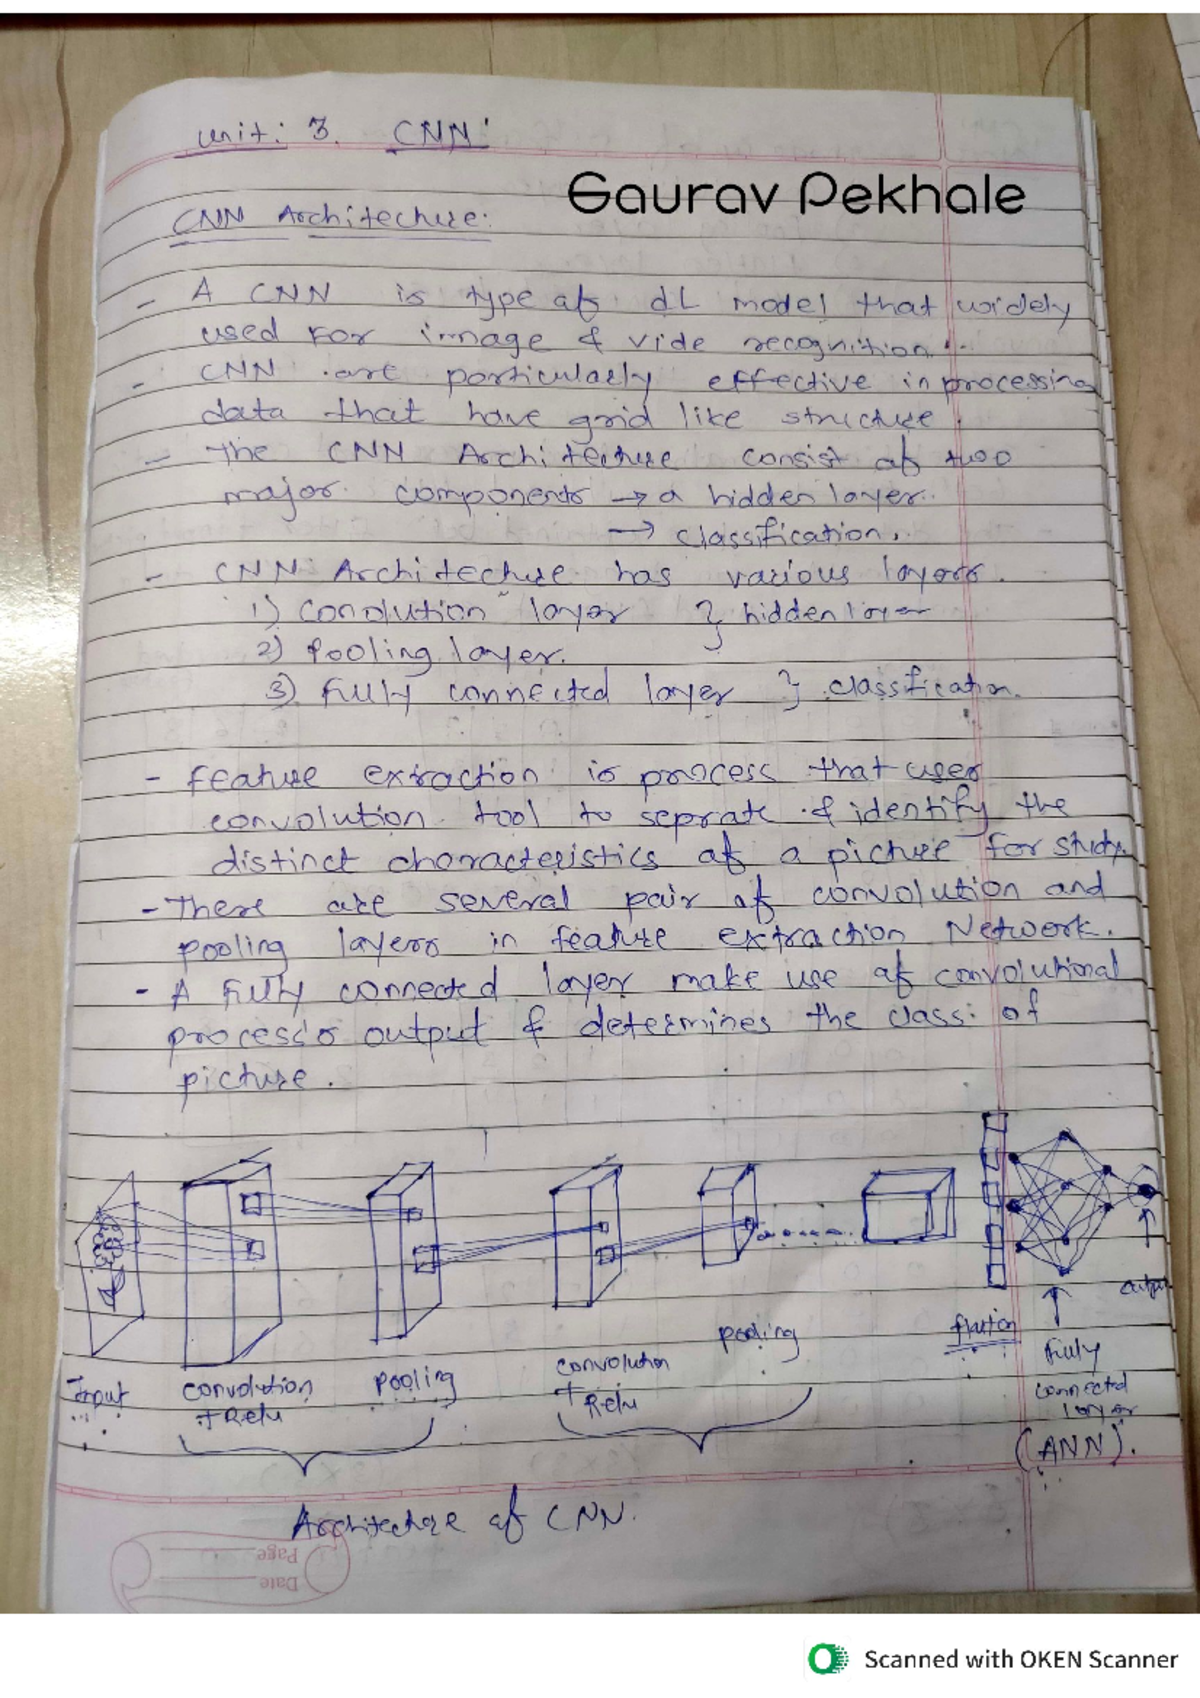 Unit: 3. CNN:
Gaurav Pekhale
CNN Architecture:
- A CNN is type of dL model that widely
used for image & vide recognition.
- CNN are particularly effective in processing
data that have grid like structure.
- The CNN Architecture consist of two
major components → a hidden layer.
→ classification.
- CNN Architecture has various layers.
1) Conolution layer } hidden layer
2) Pooling layer.
3) Fully connected layer } classification.
- feature extraction is process that uses
convolution tool to seprate & identify the
distinct characteristics of a picture for study.
- There are several pair of convolution and
pooling layers in feature extraction Network.
- A fully connected layer make use of convolutional
process's output & determines the class of
picture.
Input
convolution
+ Relu
pooling
convolution
+ Relu
pooling
output
Fully
connected
layer
(ANN).
Architecture of CNN.
Page
Date
Scanned with OKEN Scanner